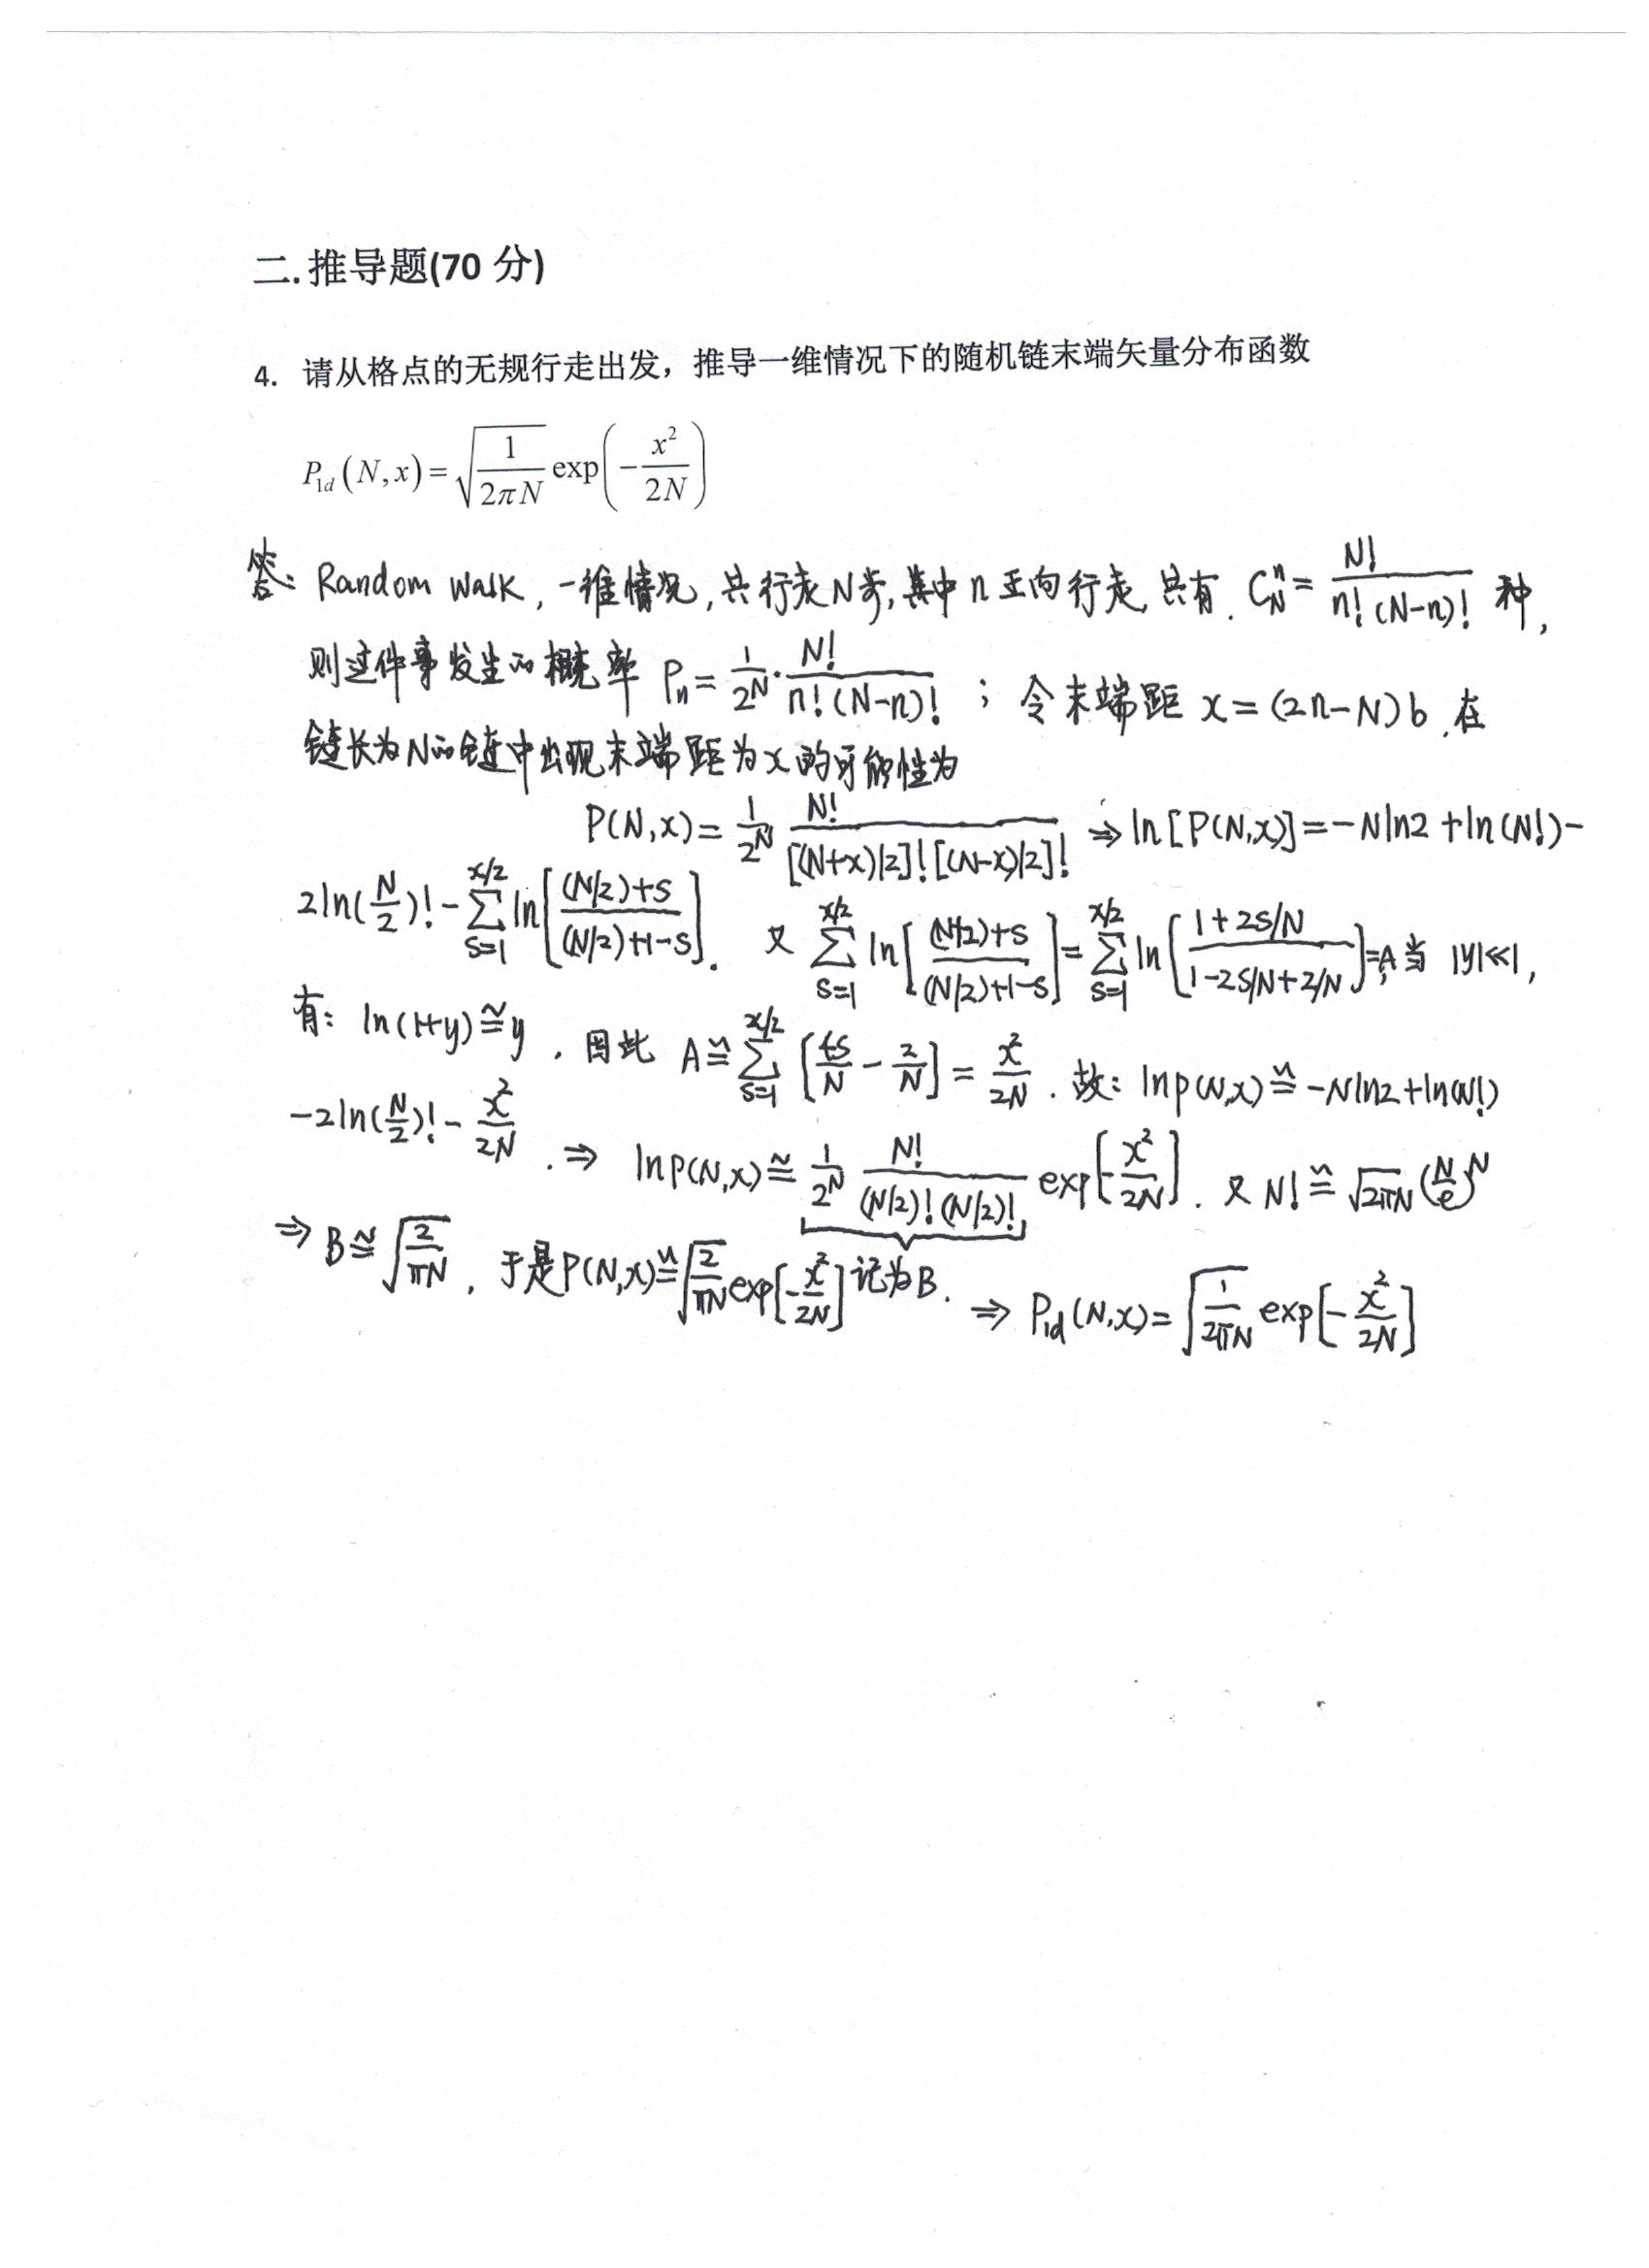 二. 推导题(70 分)
4. 请从格点的无规行走出发，推导一维情况下的随机链末端矢量分布函数
P_{1d}(N,x)=\sqrt{\frac{1}{2πN}} exp(-\frac{x^2}{2N})
答: Random Walk, 一维情况, 共行走N步, 其中 n 正向行走, 共有 C_N^n = \frac{N!}{n!(N-n)!} 种,
则这件事发生的概率 P_n = \frac{1}{2^N}·\frac{N!}{n!(N-n)!} ; 令末端距 x=(2n-N)b, 在
链长为N的链中出现末端距为x的可能性为
P(N,x)=\frac{1}{2^N} \frac{N!}{[(N+x)/2]![(N-x)/2]!} ⇒ ln[P(N,x)]=-Nln2+ln(N!)-
2ln(\frac{N}{2})!-\sum_{s=1}^{x/2} ln[\frac{(N/2)+s}{(N/2)+1-s}]. 又 \sum_{s=1}^{x/2} ln[\frac{(N/2)+s}{(N/2)+1-s}]=\sum_{s=1}^{x/2} ln[\frac{1+2s/N}{1-2s/N+2/N}]=A, 当 |y|≪1,
有: ln(1+y)≅y, 因此 A≅\sum_{s=1}^{x/2} [\frac{4s}{N}-\frac{2}{N}]=\frac{x^2}{2N}. 故: lnp(N,x)≅-Nln2+ln(N!)
-2ln(\frac{N}{2})!-\frac{x^2}{2N}. ⇒ lnp(N,x)≅\frac{1}{2^N} \frac{N!}{(N/2)!(N/2)!} exp[-\frac{x^2}{2N}]. 又 N!≅\sqrt{2πN}(\frac{N}{e})^N
⇒ B≅\sqrt{\frac{2}{πN}}, 于是P(N,x)≅\sqrt{\frac{2}{πN}}exp[-\frac{x^2}{2N}] 记为B. ⇒ P_{1d}(N,x)=\sqrt{\frac{1}{2πN}} exp[-\frac{x^2}{2N}]